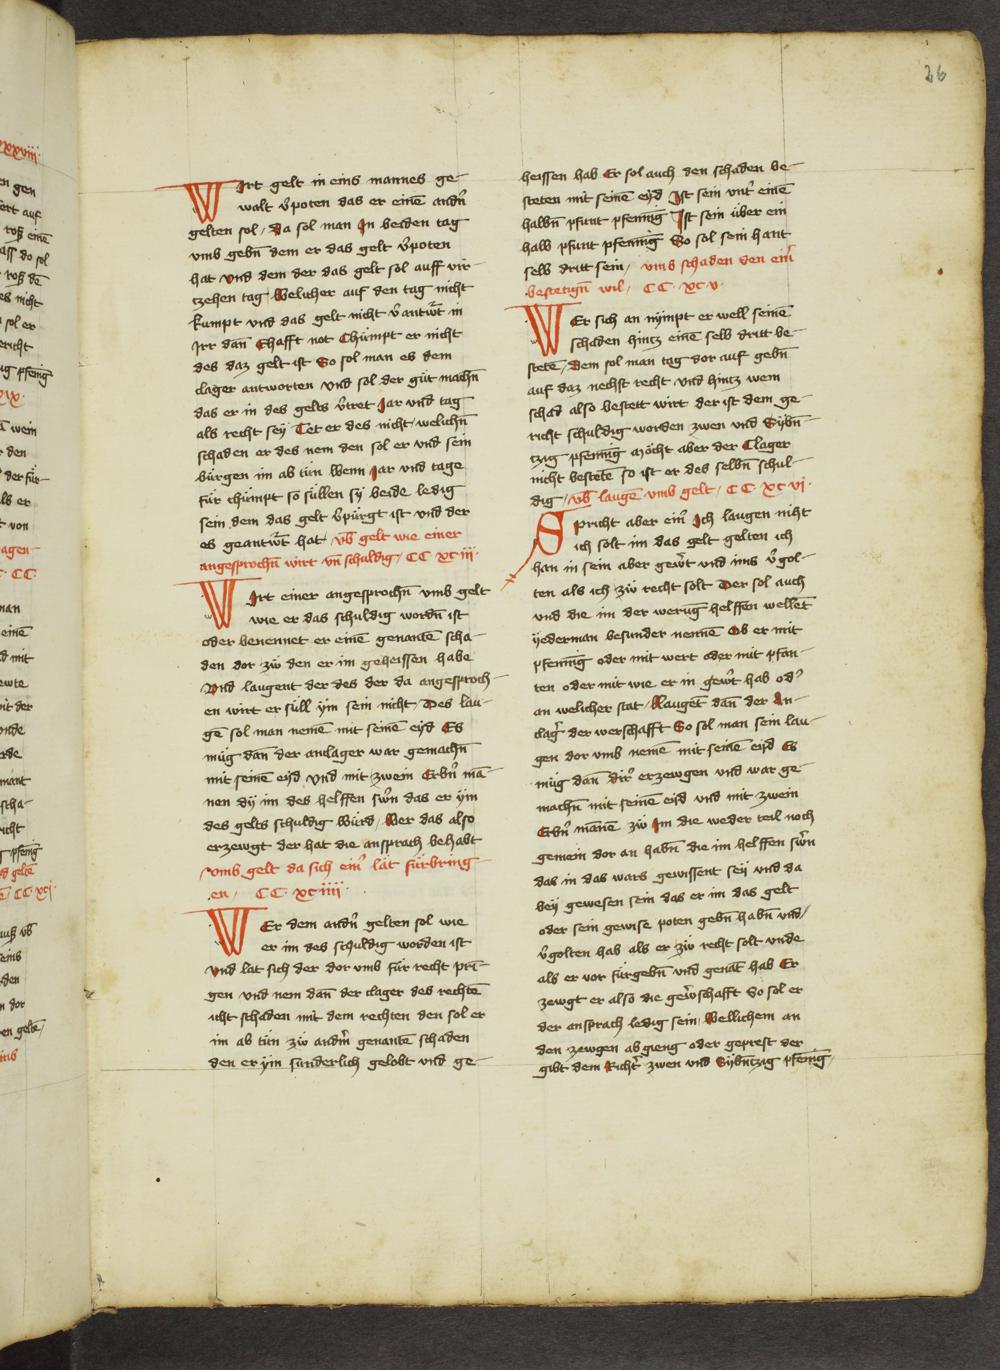 26
Wirt gelt in eins mannes ge-
walt v̓poten das er einē andn̄
gelten sol / Da sol man In beiden tag
vmb gebn̄ dem er das gelt v̓poten
hat vnd dem der das gelt sol auff vir-
tzehen tag / Welicher auf den tag nicht
kumpt vnd das gelt nicht v̓antwͦt in
Irr dan̄ Ehafft not Chümpt er nicht
des daz gelt ist So sol man es dem
clager antworten vnd sol der güt machn̄
das er in des gelts v̓tret Jar vnd tag
als recht sey / Tet er des nicht welichn̄
schaden er des nem den sol er vnd sein
bürgen im ab tün Wenn Jar vnd tage
für chümpt so süllen sy beide ledig
sein dem das gelt v̓pürgt ist vnd der
es geantwͦt hat / vb̄ gelt wie einer
angesprochn̄ wirt vn̄ schuldig / CC xciii
Wirt einer angesprochn̄ vmb gelt
wie er das schuldig wordn̄ ist
oder benennet er einē genantē scha-
den dor zü den er im geheissen habe
Vnd laugent der des der da angesproch-
en wirt er süll ym sein nicht / Des lau-
gē sol man nemē mit seinē eyd Es
müg dan̄ der anclager war gemachn̄
mit seinē eyd vnd mit zwein Erbn̓ mā-
nen dy im des helffen swn̓ das er ym
des gelts schuldig würd / Wer das also
erzewgt der hat die ansprach behabt
vmb gelt da sich ein̓ lat fürbring
en / CC xciiii
Wer dem andn̓ gelten sol wie
er im des schuldig worden ist
vnd lat sich der dor vmb für recht prī-
gen vnd nem dan̄ der clager des rechtē
icht schaden mit dem rechten den sol er
im ab tün zü andm̓ genantē schaden
den er ym sunderlich gelobt vnd ge-
heissen hab Er sol auch den schaden be-
steten mit seinē eyd Ist sein vnt̓ einē
halbn̄ pfunt pfennīg Ist sein über ein
halb pfunt pfennīg So sol sein hant
selb dritt sein / vmb schaden den ein̓
bestetign̄ wil / CC xcv
Wer sich an nympt er well seinē
schaden hintz einē selb dritt be-
stetē / Dem sol man tag dor auf gebn̄
auf daz nechst recht vnd hintz wem
schad also bestett wirt der ist dem ge-
richt schuldig worden zwen vnd Sybn̄-
tzig pfennīg Möcht aber der Clager
nicht bestetē so ist er des selbn̄ schul-
dig / vb̄ laugē vmb gelt / CC xcvi
Spricht aber ein̓ Ich laugen niht
ich solt im das gelt gelten ich
han in sein aber gew̓t vnd ims v̓gol-
ten als ich zü recht solt Der sol auch
vnd die im der werūg helffen wellēt
yederman besunder nennē Ob er mit
pfennīg oder mit wert oder mit pfan-
ten oder mit wie er in gew̓t hab od̓
an welicher stat / Laugēt dan̄ der An-
clag̓ der werschafft So sol man sein lau-
gen dor vmb nemē mit seinē eyd Es
müg dan̄ dir̓ erzewgen vnd war ge-
machn̄ mit seinē eyd vnd mit zwein
Erbn̓ mānē zü Im die weder teil noch
gemein dor an habn̄ die im helffen swn̓
das in das wars gewissent sey vnd da
bey gewesen sein das er im das gelt
oder sein gewise poten gebn̄ habn̄ vnd /
v̓golten hab als er zü recht solt vnde
als er vor fürgebn̄ vnd genāt hab Er
zewgt er also die gew̓schafft So sol er
der ansprach ledig sein / Wellichem an
den zewgen ab gieng oder geprest der
gibt dem Richt̓ zwen vnd Sybn̄tzig pfenīg /